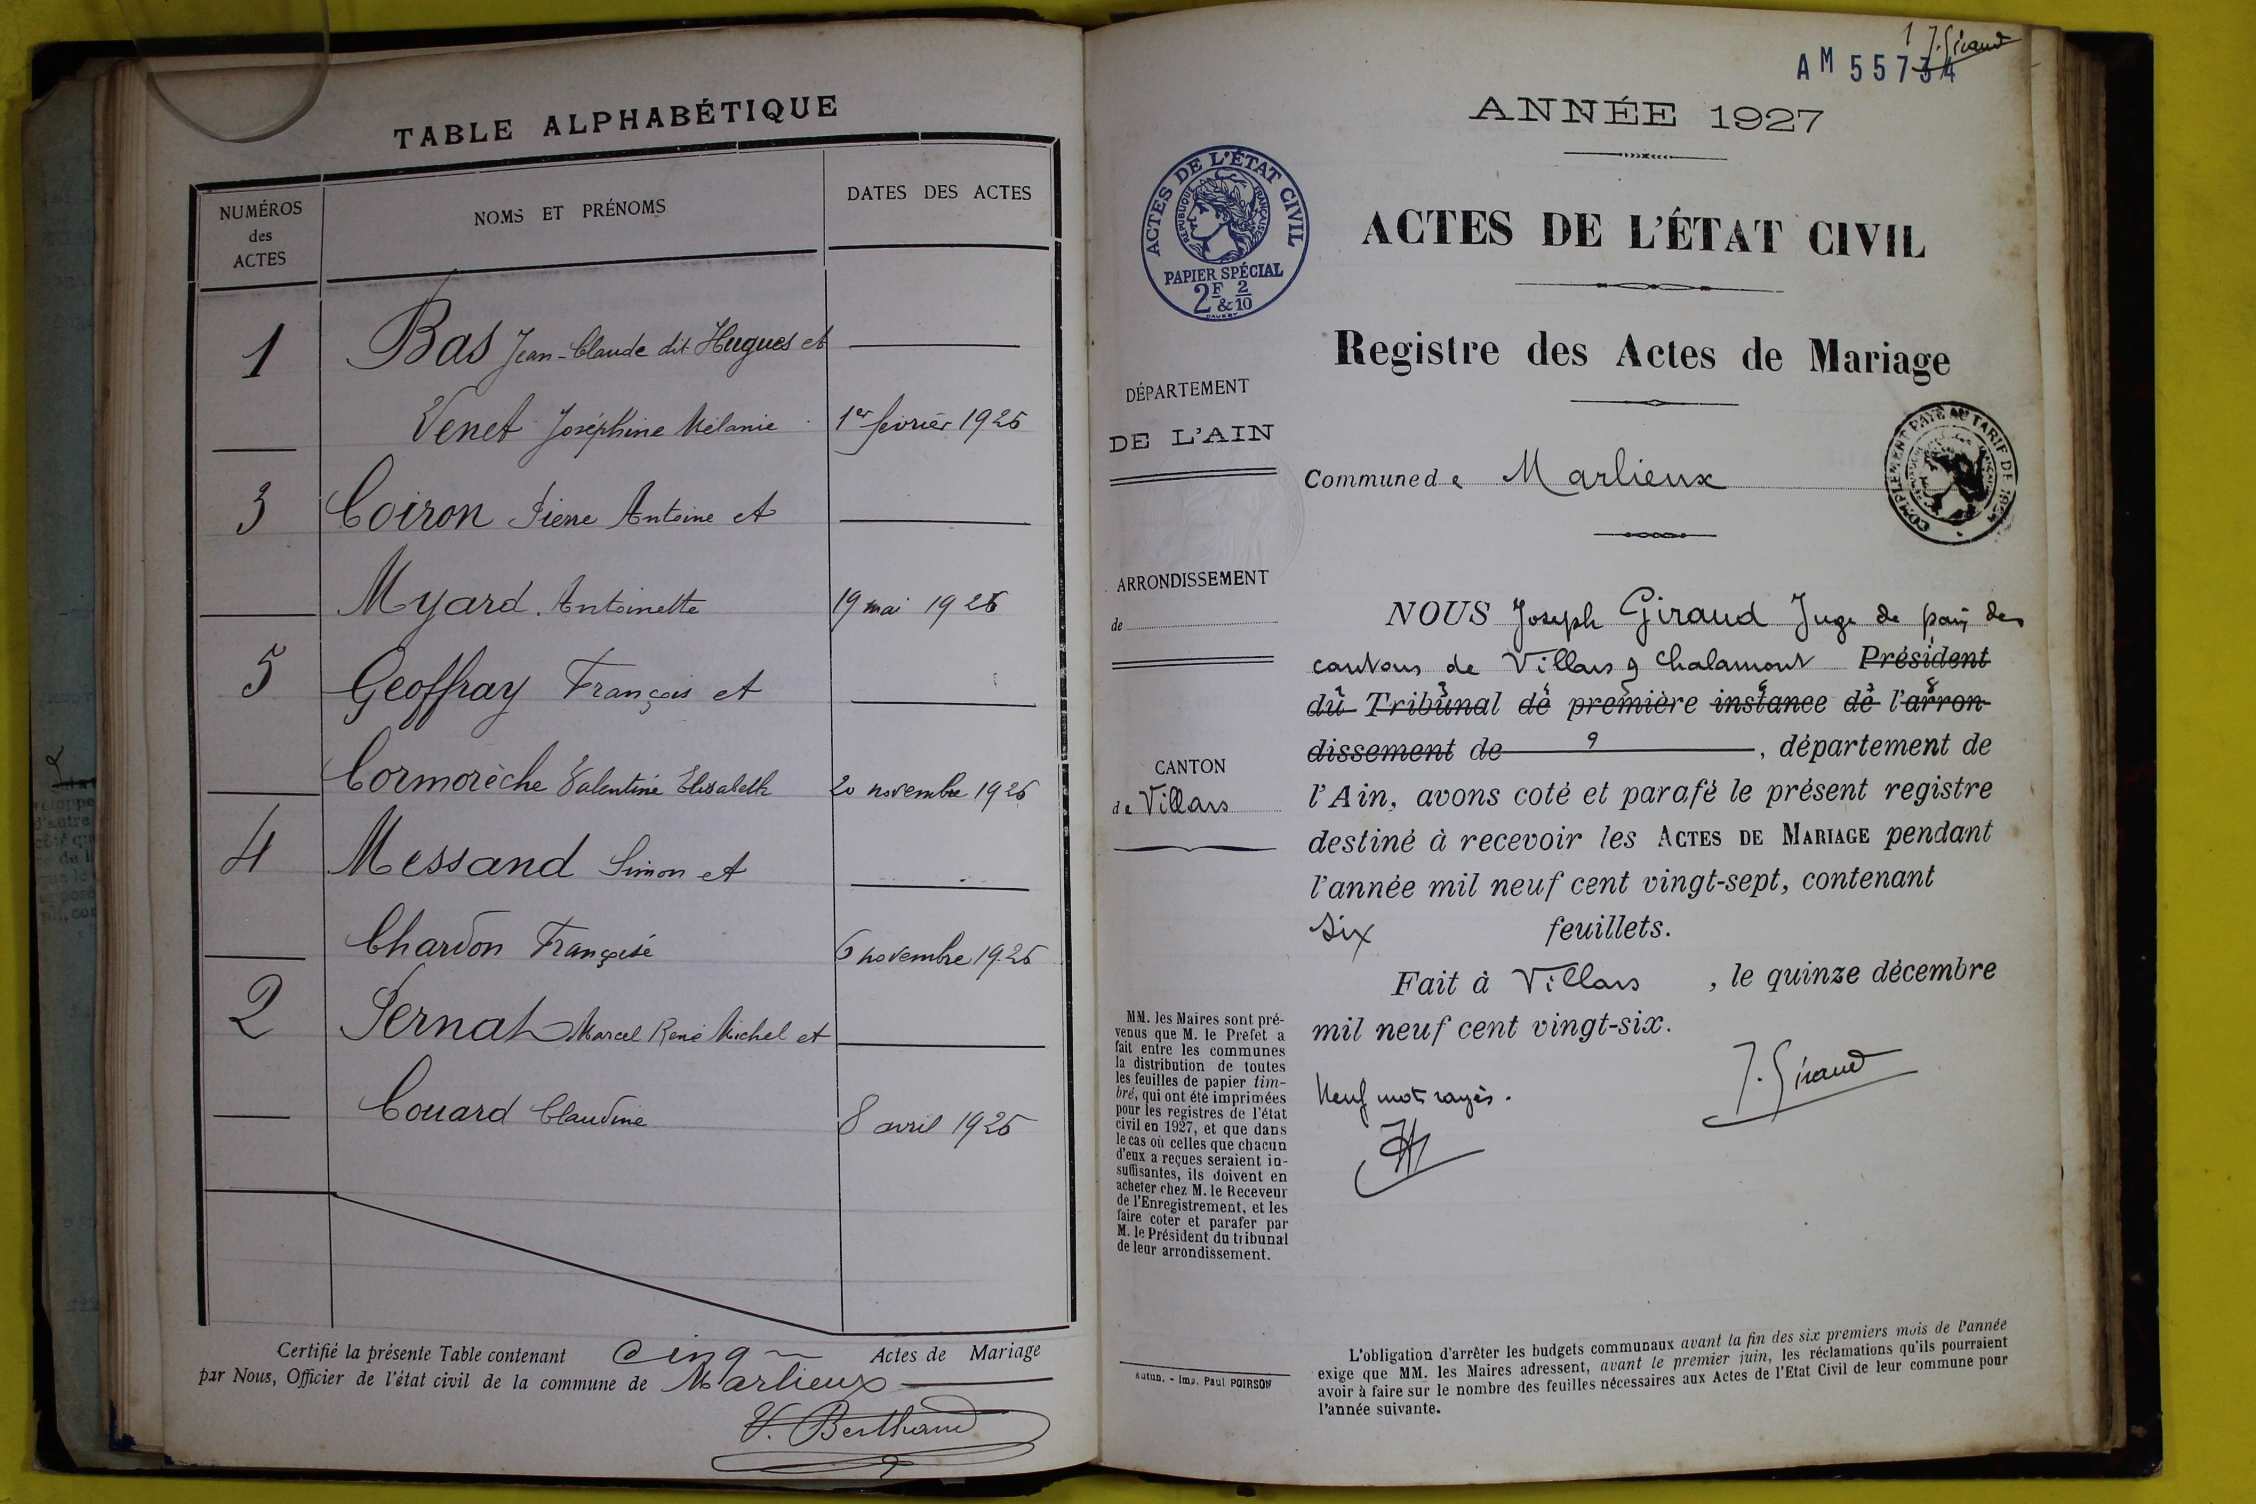 TABLE ALPHABÉTIQUE
NUMÉROS des ACTES
NOMS ET PRÉNOMS
DATES DES ACTES
1 Bas Jean-Claude dit Hugues et
Venet Joséphine Mélanie 1er février 1926
3 Coiron Pierre Antoine et
Myard Antoinette 19 mai 1926
5 Geoffray François et
Cormorèche Valentine Elisabeth 20 novembre 1926
4 Messand Simon et
Chardon Françoise 6 novembre 1926
2 Pernat Marcel René Michel et
Couard Claudine 8 avril 1926
Certifié la présente Table contenant cinq Actes de Mariage
par Nous, Officier de l'état civil de la commune de Marlieux
V. Berthaud
1 J. Giraud
AM 55734
ANNÉE 1927
ACTES DE L'ÉTAT CIVIL
RÉPUBLIQUE FRANÇAISE
PAPIER SPÉCIAL
2F & 2/10
ACTES DE L'ÉTAT CIVIL
Registre des Actes de Mariage
DÉPARTEMENT
DE L'AIN
COMPLÉMENT PAYÉ AU TARIF DE
Commune de Marlieux
ARRONDISSEMENT
de
CANTON
de Villars
NOUS Joseph Giraud Juge de paix des
cantons de Villars & Chalamont Président
du Tribunal de première instance de l'arron-
dissement de 9, département de
l'Ain, avons coté et parafé le présent registre
destiné à recevoir les ACTES DE MARIAGE pendant
l'année mil neuf cent vingt-sept, contenant
six feuillets.
Fait à Villars, le quinze décembre
mil neuf cent vingt-six.
Neuf mots rayés.
J. Giraud
MM. les Maires sont pré-
venus que M. le Préfet a
fait entre les communes
la distribution de toutes
les feuilles de papier tim-
bré, qui ont été imprimées
pour les registres de l'état
civil en 1927, et que dans
le cas où celles que chacun
d'eux a reçues seraient in-
suffisantes, ils doivent en
acheter chez M. le Receveur
de l'Enregistrement, et les
faire coter et parafer par
M. le Président du tribunal
de leur arrondissement.
Autun. - Imp. Paul POIRSON
L'obligation d'arrêter les budgets communaux avant la fin des six premiers mois de l'année
exige que MM. les Maires adressent, avant le premier juin, les réclamations qu'ils pourraient
avoir à faire sur le nombre des feuilles nécessaires aux Actes de l'État Civil de leur commune pour
l'année suivante.